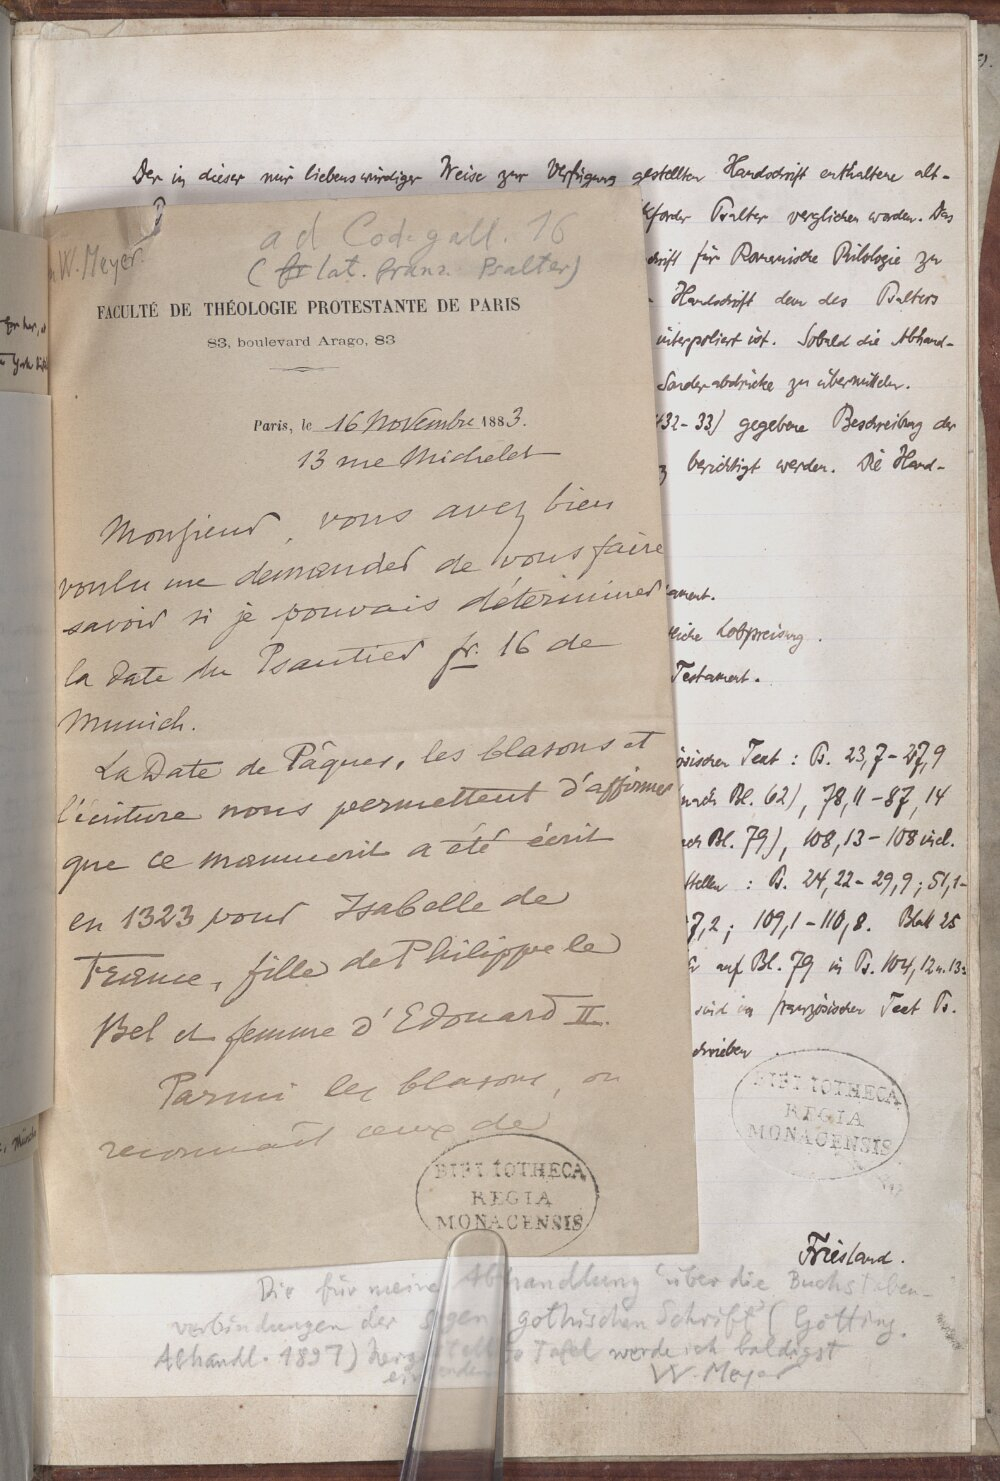 ad Cod. gall. 16
W. Meyer.
(lat. franz. Psalter)
FACULTÉ DE THÉOLOGIE PROTESTANTE DE PARIS
83, boulevard Arago, 83
Paris, le 16 Novembre 1883.
13 rue Michelet
Monsieur, vous avez bien
voulu me demander de vous faire
savoir si je pouvais déterminer
la date du Psautier fr. 16 de
Munich.
La Date de Pâques, les blasons et
l'écriture nous permettent d'affirmer
que ce manuscrit a été écrit
en 1323 pour Isabelle de
France, fille de Philippe le
Bel et femme d'Edouard II.
Parmi les blasons, on
reconnaît ceux de
BIBLIOTHECA
REGIA
MONACENSIS
Der in dieser mir liebenswürdiger Weise zur Verfügung gestellten Handschrift enthaltene alt-
Psalter verglichen worden. Das
für Romanische Philologie zu
Handschrift dem des Psalters
interpoliert ist. Sobald die Abhand-
Sonderabdrücke zu übermitteln.
432-33) gegebene Beschreibung der
berichtigt werden. Die Hand-
Lobpreisung.
Testament.
Text: Ps. 23,7-27,9
Bl. 62), 78,11-87,14
Bl. 79), 108,13-108 incl.
: Ps. 24,22-29,9; 51,1-
7,2; 109,1-110,8. Blatt 25
auf Bl. 79 in Ps. 104, 12 u. 13:
sind im französischen Text Ps.
BIBLIOTHECA
REGIA
MONACENSIS
Friesland.
Die für meine Abhandlung über die Buchstaben-
verbindungen der sogen. gothischen Schrift (Götting.
Abhandl. 1897) Tafel werde ich baldigst
W. Meyer